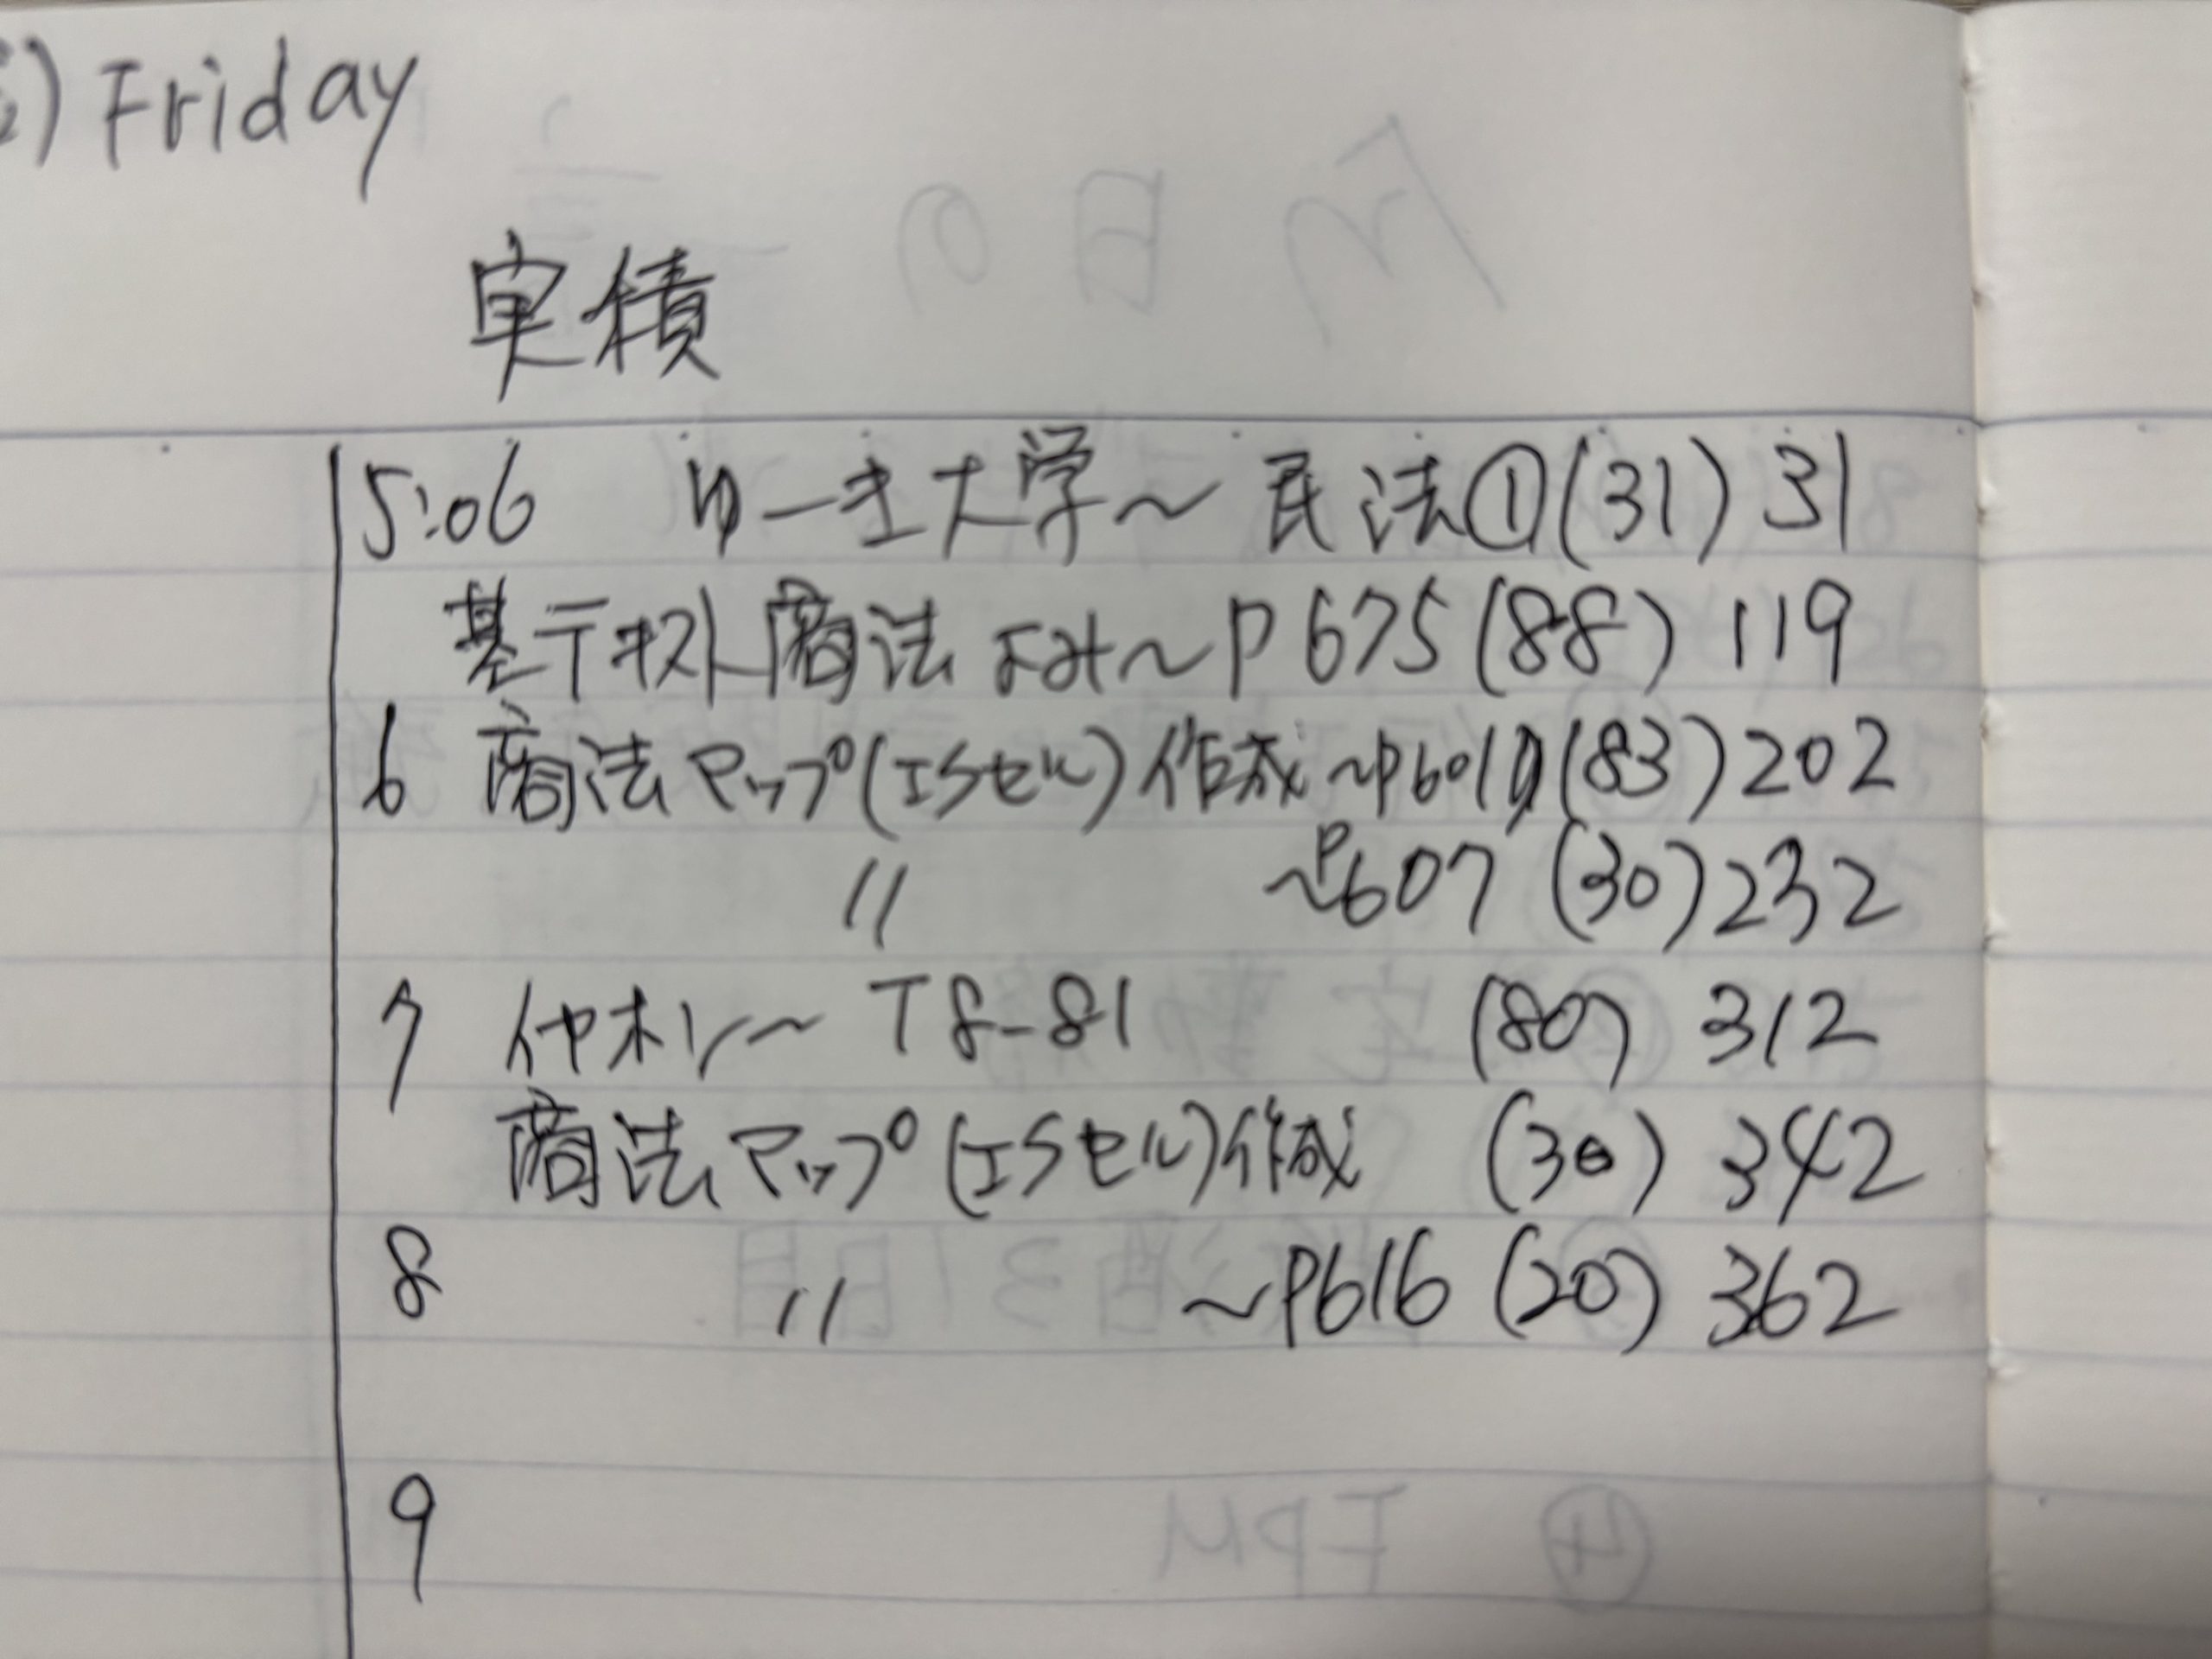 ) Friday
実積
5:06 ゆーき大学～民法①(31) 31
基テキスト商法よみ～P675(88) 119
6 商法マップ(エクセル)作成～P601(83)202
〃 ～P607(30)232
7 イヤホン～T8-81 (80) 312
商法マップ(エクセル)作成 (30) 342
8 〃 ～P616(20) 362
9